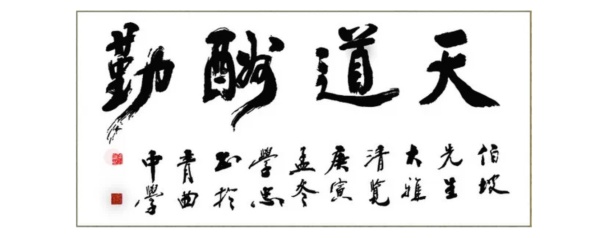 天道酬勤
伯坡
先生
大雅
清览
庚寅
孟冬
學忠
书於
青曲
中學